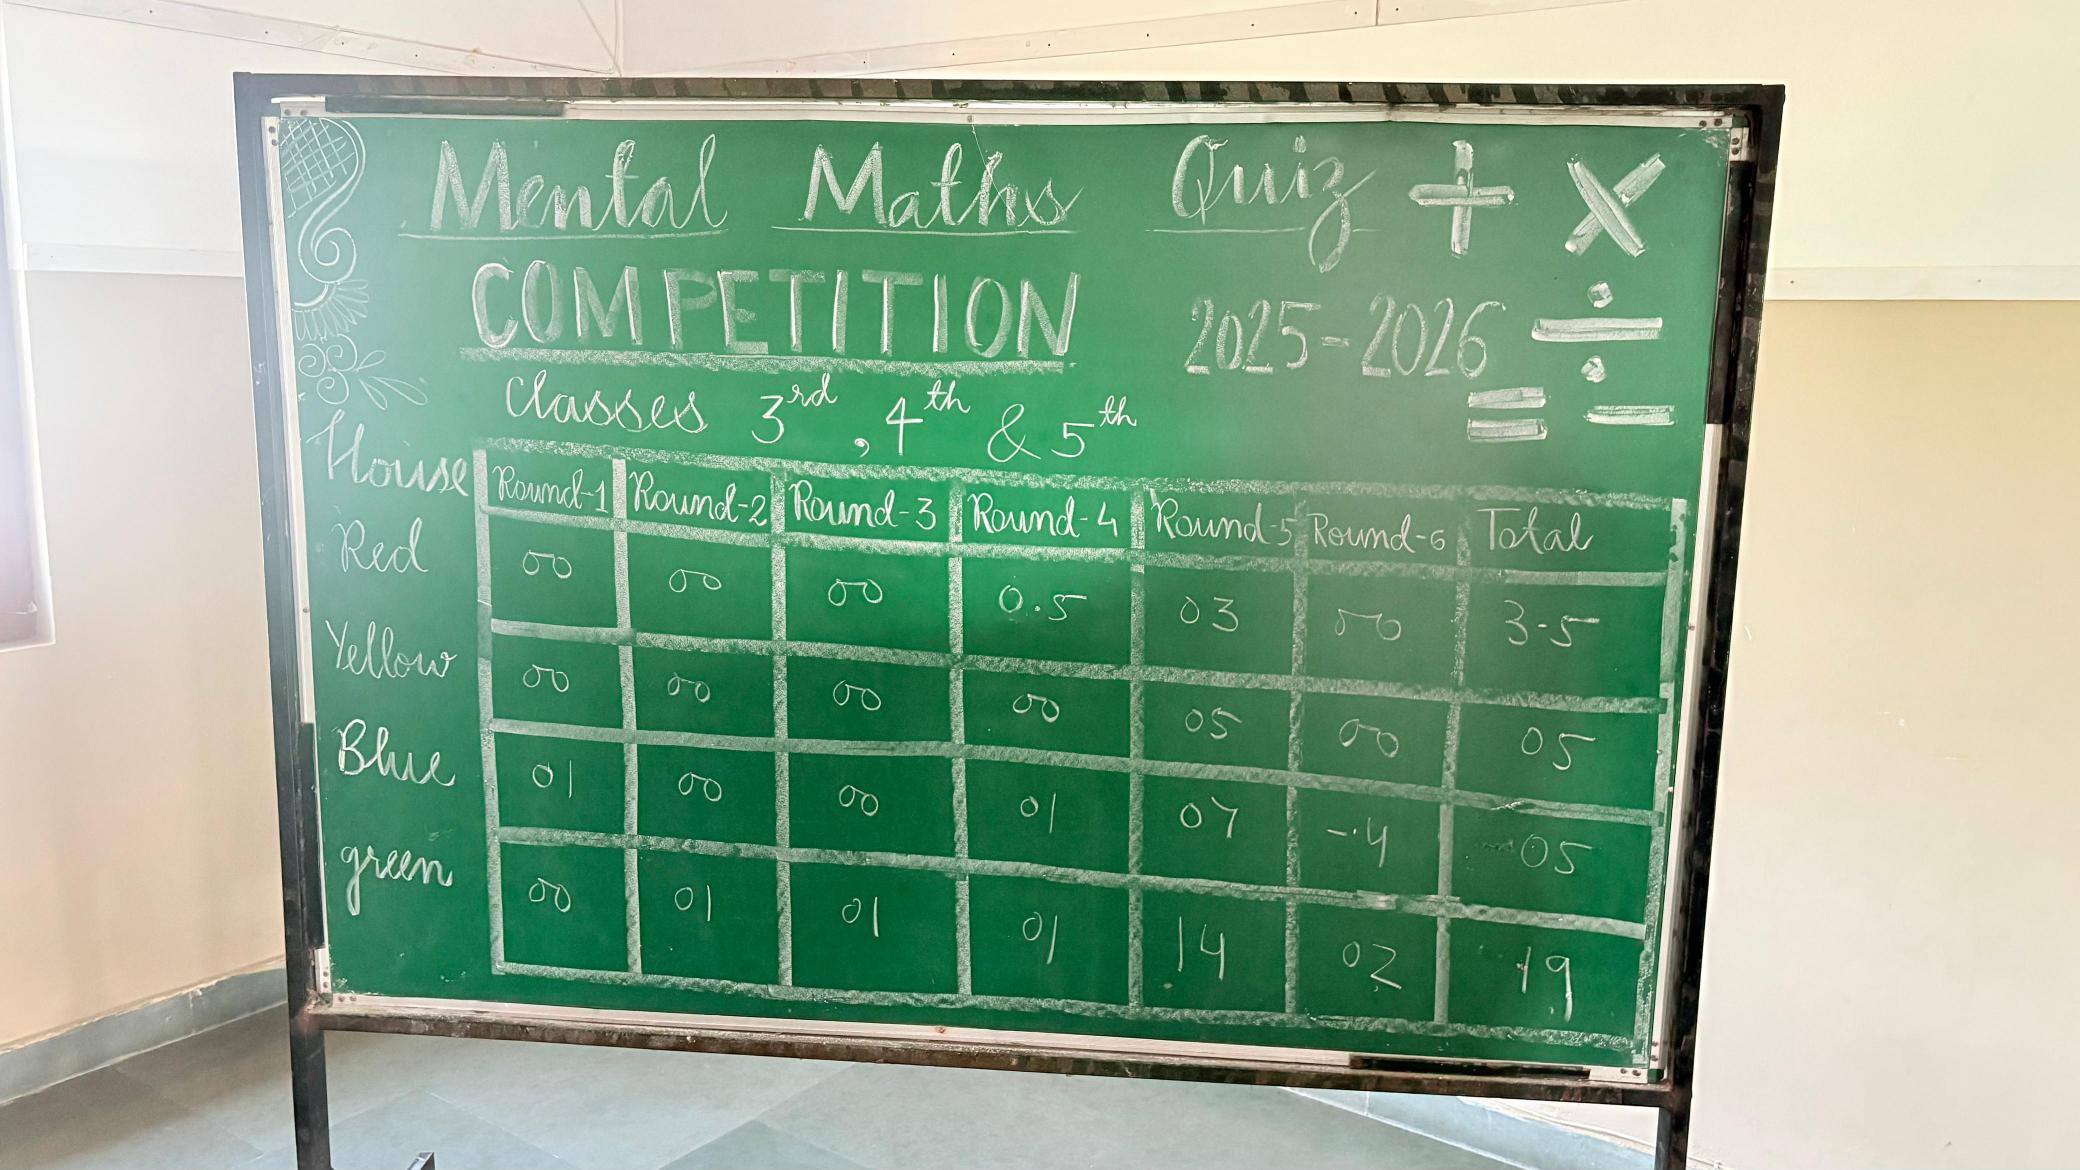 Mental Maths Quiz + ×
COMPETITION 2025-2026 ÷
= -
Classes 3rd, 4th & 5th
House Round-1 Round-2 Round-3 Round-4 Round-5 Round-6 Total
Red 00 00 00 0.5 03 00 3.5
Yellow 00 00 00 00 05 00 05
Blue 01 00 00 01 07 -4 05
green 00 01 01 01 14 02 19